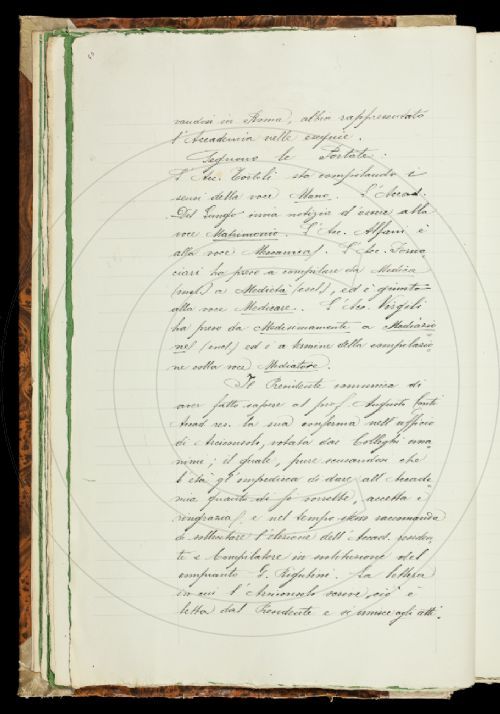 vandosi in Roma, abbia rappresentato
l'Accademia nelle esequie.
Seguono le Portate:
L'Acc. Tortoli sta compilando i
sensi della voce Mano. L'Accad.
Del Lungo invia notizia d'essere alla
voce Matrimonio. L'Acc. Alfani è
alla voce Meccanica. L'Acc. Forna=
ciari ha preso a compilare da Medica
(incl.) a Medietà (escl.), ed è giunto
alla voce Medicare. L'Acc. Virgili
ha preso da Medesimamente a Mediazio=
ne (incl.) ed è a termine della compilazio=
ne colla voce Mediatore.
Il Presidente comunica di
aver fatto sapere al prof. Augusto Conti
Accad. res. la sua conferma nell'ufficio
di Arciconsolo, votata dai Colleghi una=
nime; il quale, pure scusandosi che
l'età gl'impedisca di dare all'Accade=
mia quanto di sé vorrebbe, accetta e
ringrazia, e nel tempo stesso raccomanda
di sollecitare l'elezione dell'Accad. residen=
te e Compilatore in sostituzione del
compianto G. Rigutini. La lettera
in cui l'Arciconsolo scrive ciò è
letta dal Presidente e si unisce agli atti.